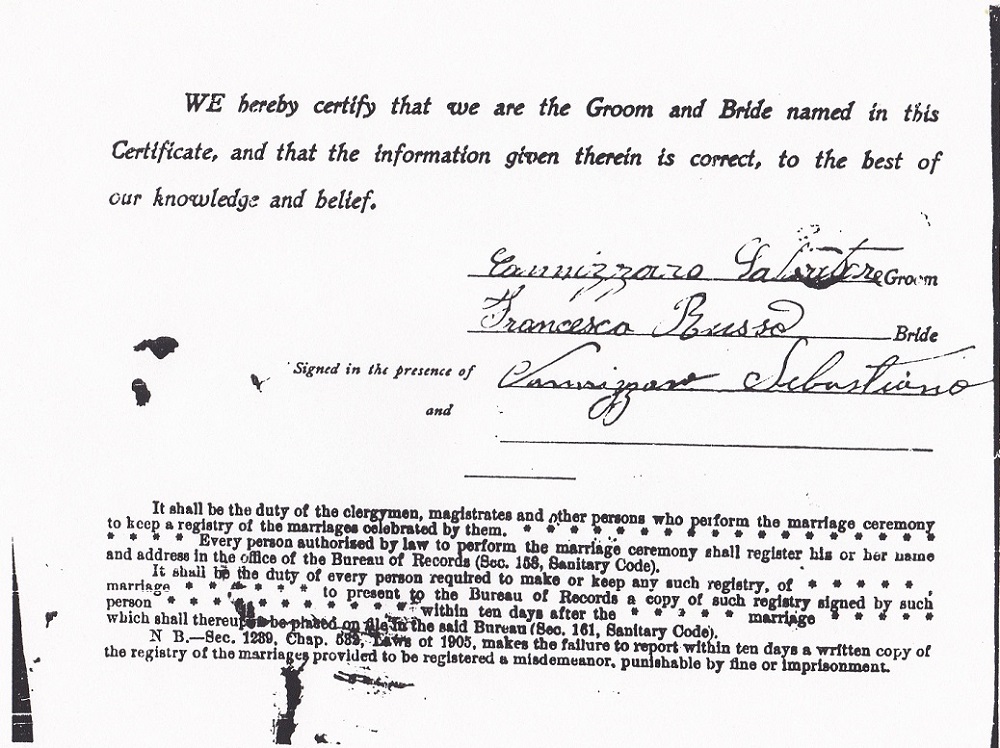 WE hereby certify that we are the Groom and Bride named in this
Certificate, and that the information given therein is correct, to the best of
our knowledge and belief.
Cannizzaro Salvatore Groom
Francesca Russo Bride
Signed in the presence of Cannizzaro Sebastiano
and
It shall be the duty of the clergymen, magistrates and other persons who perform the marriage ceremony
to keep a registry of the marriages celebrated by them. * * * * * * * * * * * * * * *
* * * * * Every person authorized by law to perform the marriage ceremony shall register his or her name
and address in the office of the Bureau of Records (Sec. 158, Sanitary Code).
It shall be the duty of every person required to make or keep any such registry, of * * * * *
marriage * * * * * * to present to the Bureau of Records a copy of such registry signed by such
person * * * * * * * * * * * * within ten days after the * * * * * marriage * * * * *
which shall thereupon be placed on file in the said Bureau (Sec. 161, Sanitary Code).
N B.—Sec. 1239, Chap. Laws of 1905, makes the failure to report within ten days a written copy of
the registry of the marriages provided to be registered a misdemeanor, punishable by fine or imprisonment.